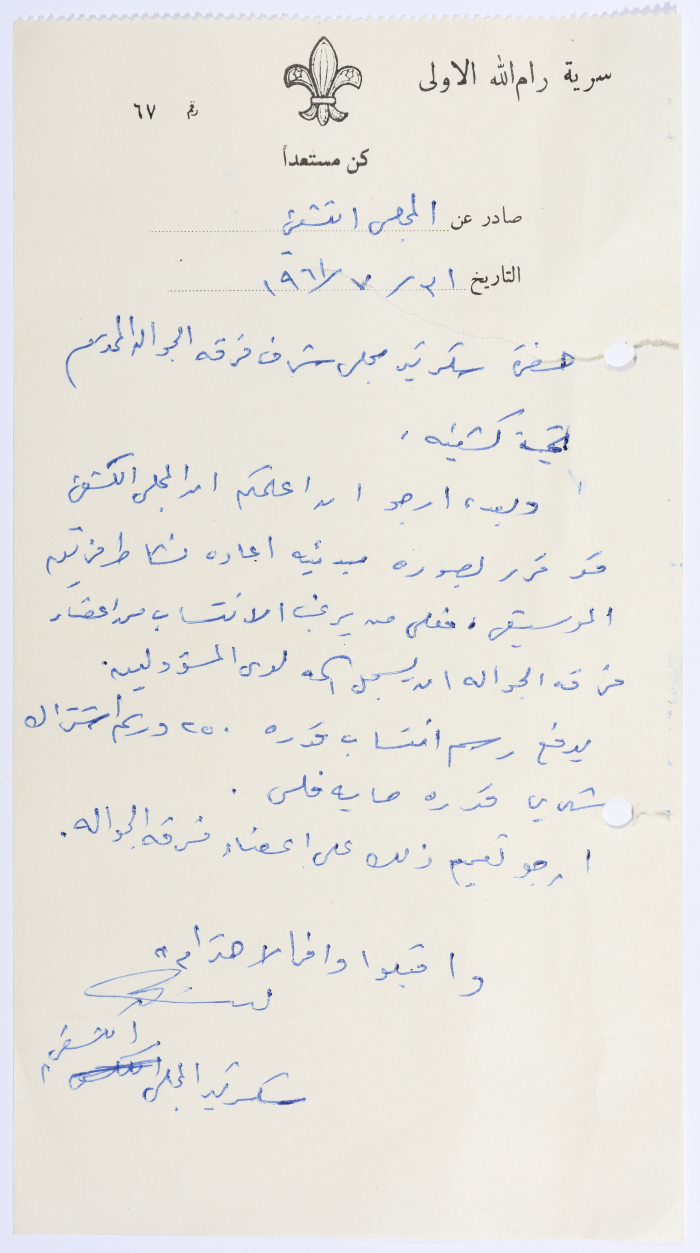 سرية رام الله الاولى
رقم ٦٧
كن مستعداً
صادر عن المجلس الكشفي
التاريخ ٣١ / ٧ / ١٩٦١
حضرة سكرتير مجلس شرف فرقه الجواله المحترم
تحية كشفيه ،
وبعد ، ارجو ان اعلمكم ان المجلس الكشفي
قد قرر بصوره مبدئيه اعاده نشاط فرقته
الموسيقى ، فعلى من يرغب الانتساب من اعضاء
فرقه الجواله ان يسجل اسمه لدى المسؤولين .
يدفع رسم انتساب قدره ٢٥٠ ورسم اشتراك
شهري قدره مايه فلس .
ارجو تعميم ذلك على اعضاء فرقه الجواله .
واقبلوا وافر الاحترام "
سكرتير المجلس الكشفي